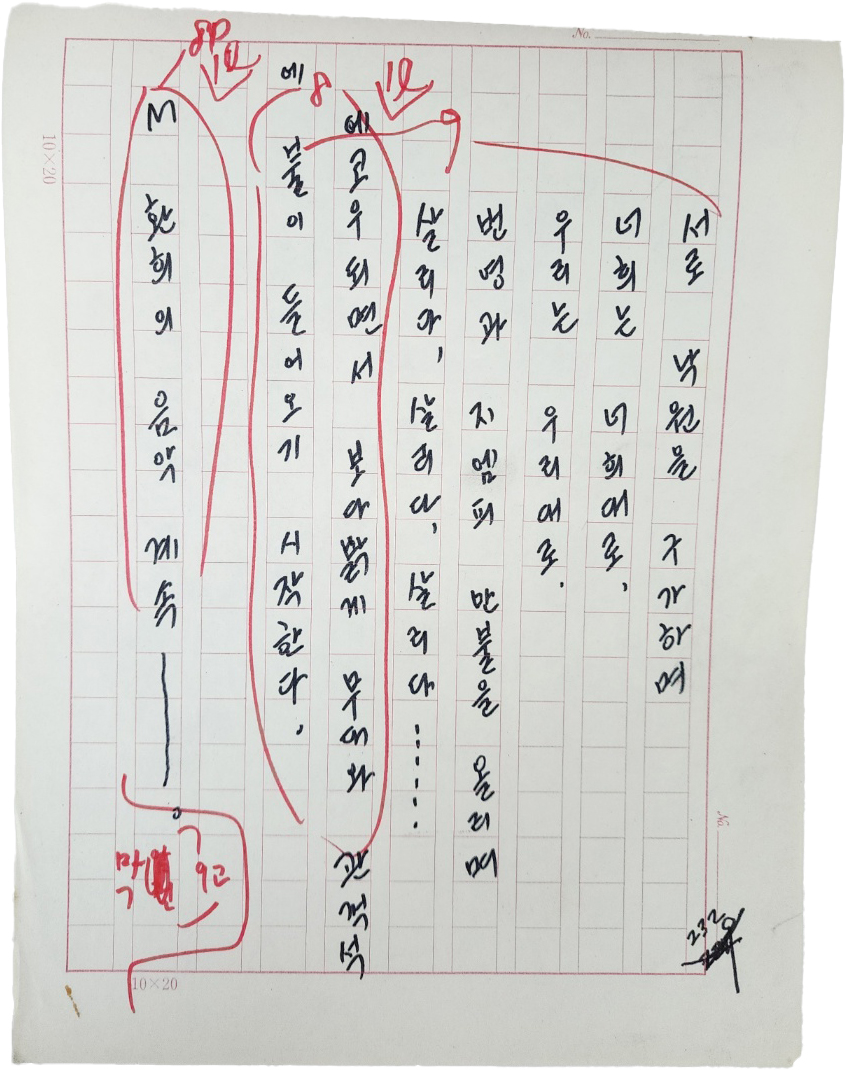 No.
서로 낙원을 구가하며
너희는 너희대로,
우리는 우리대로.
번영과 지엠피 만불을 올리며
살리라, 살리라, 살리라……
에고우 되면서 보아 밝게 무대와 관객석
에 불이 들어오기 시작한다.
M 환희의 음악 계속 ——。
8P
1칸
8
1칸
막
9고
232
No.
10×20
10×20